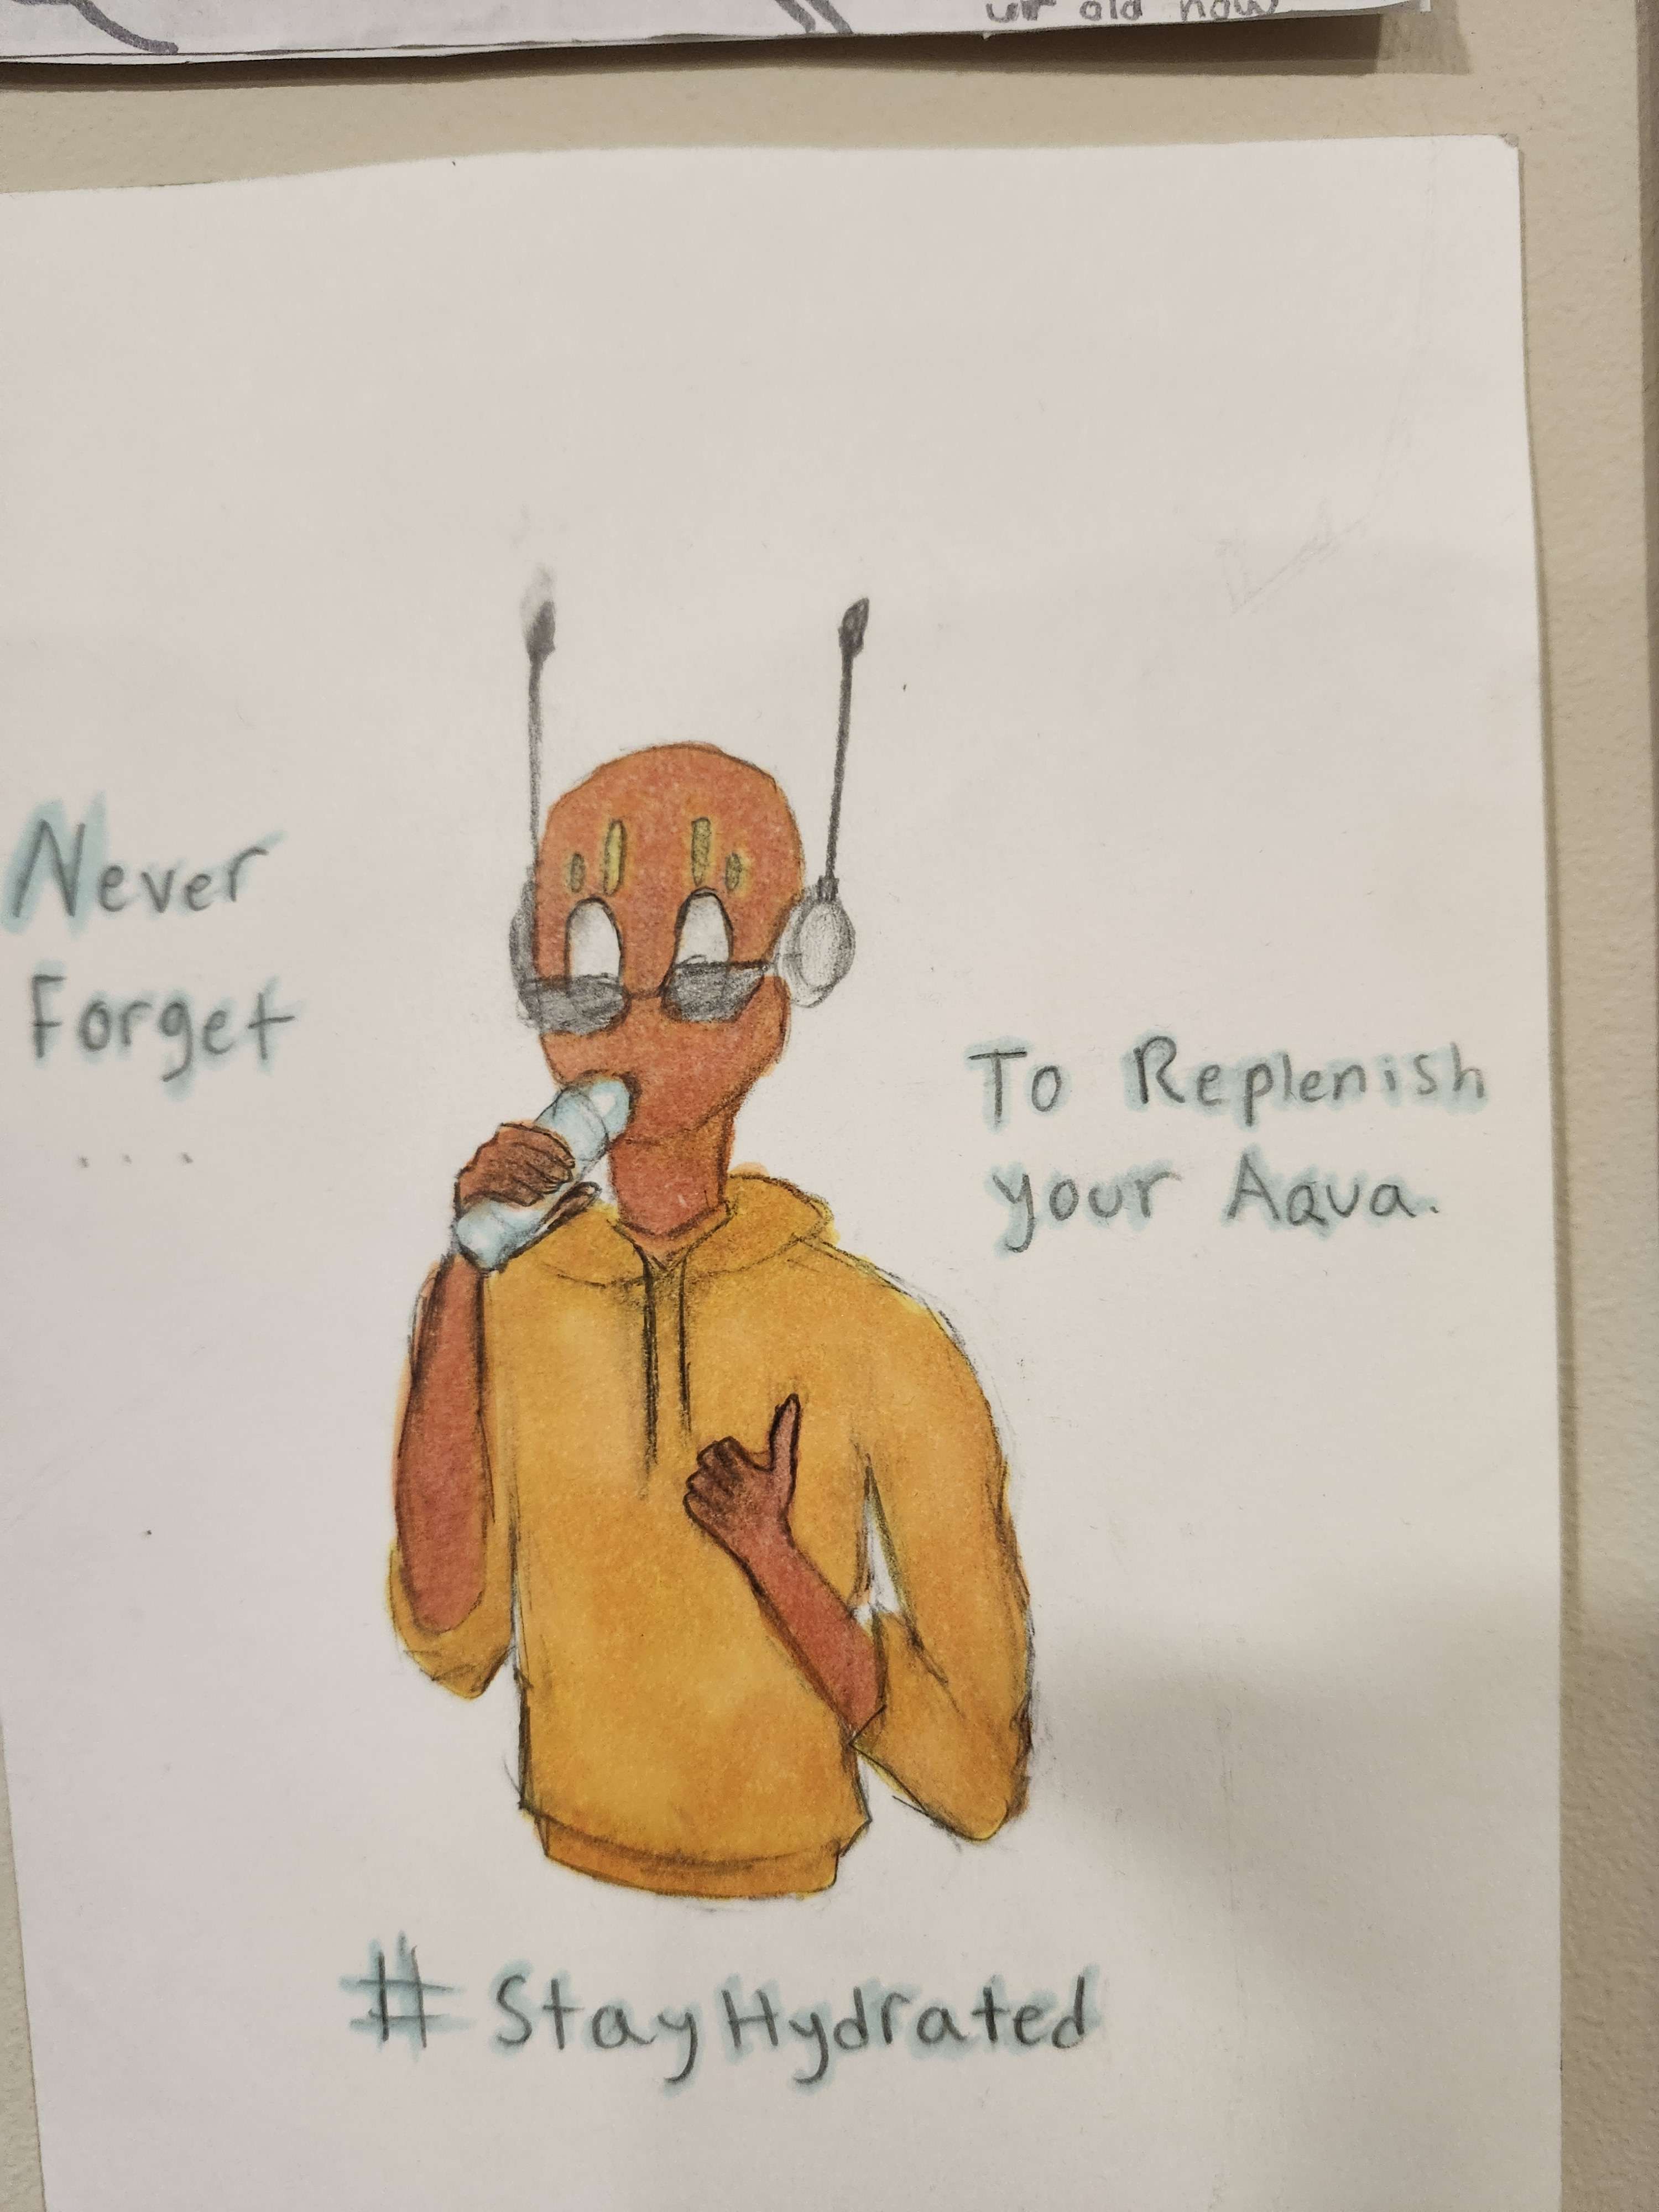 ur old now
Never
Forget
...
To Replenish
your Aqua.
#StayHydrated